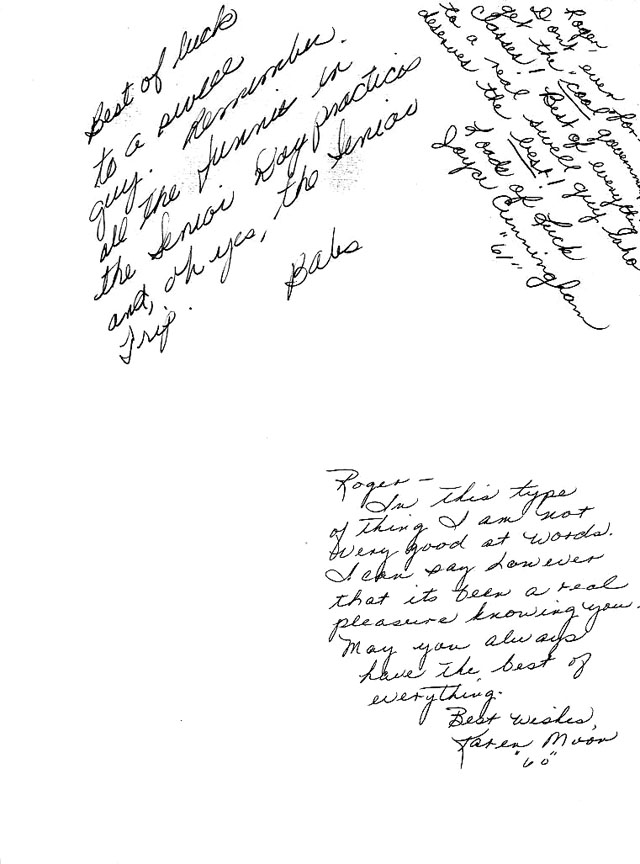 Best of luck
to a swell
guy. Remember
all the funnies in
the Senior Day practices
and, oh yes, the Senior
Trip.
Babs
Roger,
Don't ever for-
get the "cool" government
classes! Best of everything
to a real swell guy who
deserves the best!
Loads of Luck
Joyce Cunningham
"61"
Roger —
In this type
of thing I am not
very good at words.
I can say however
that its been a real
pleasure knowing you.
May you always
have the best of
everything.
Best Wishes,
Karen Moon
"60"